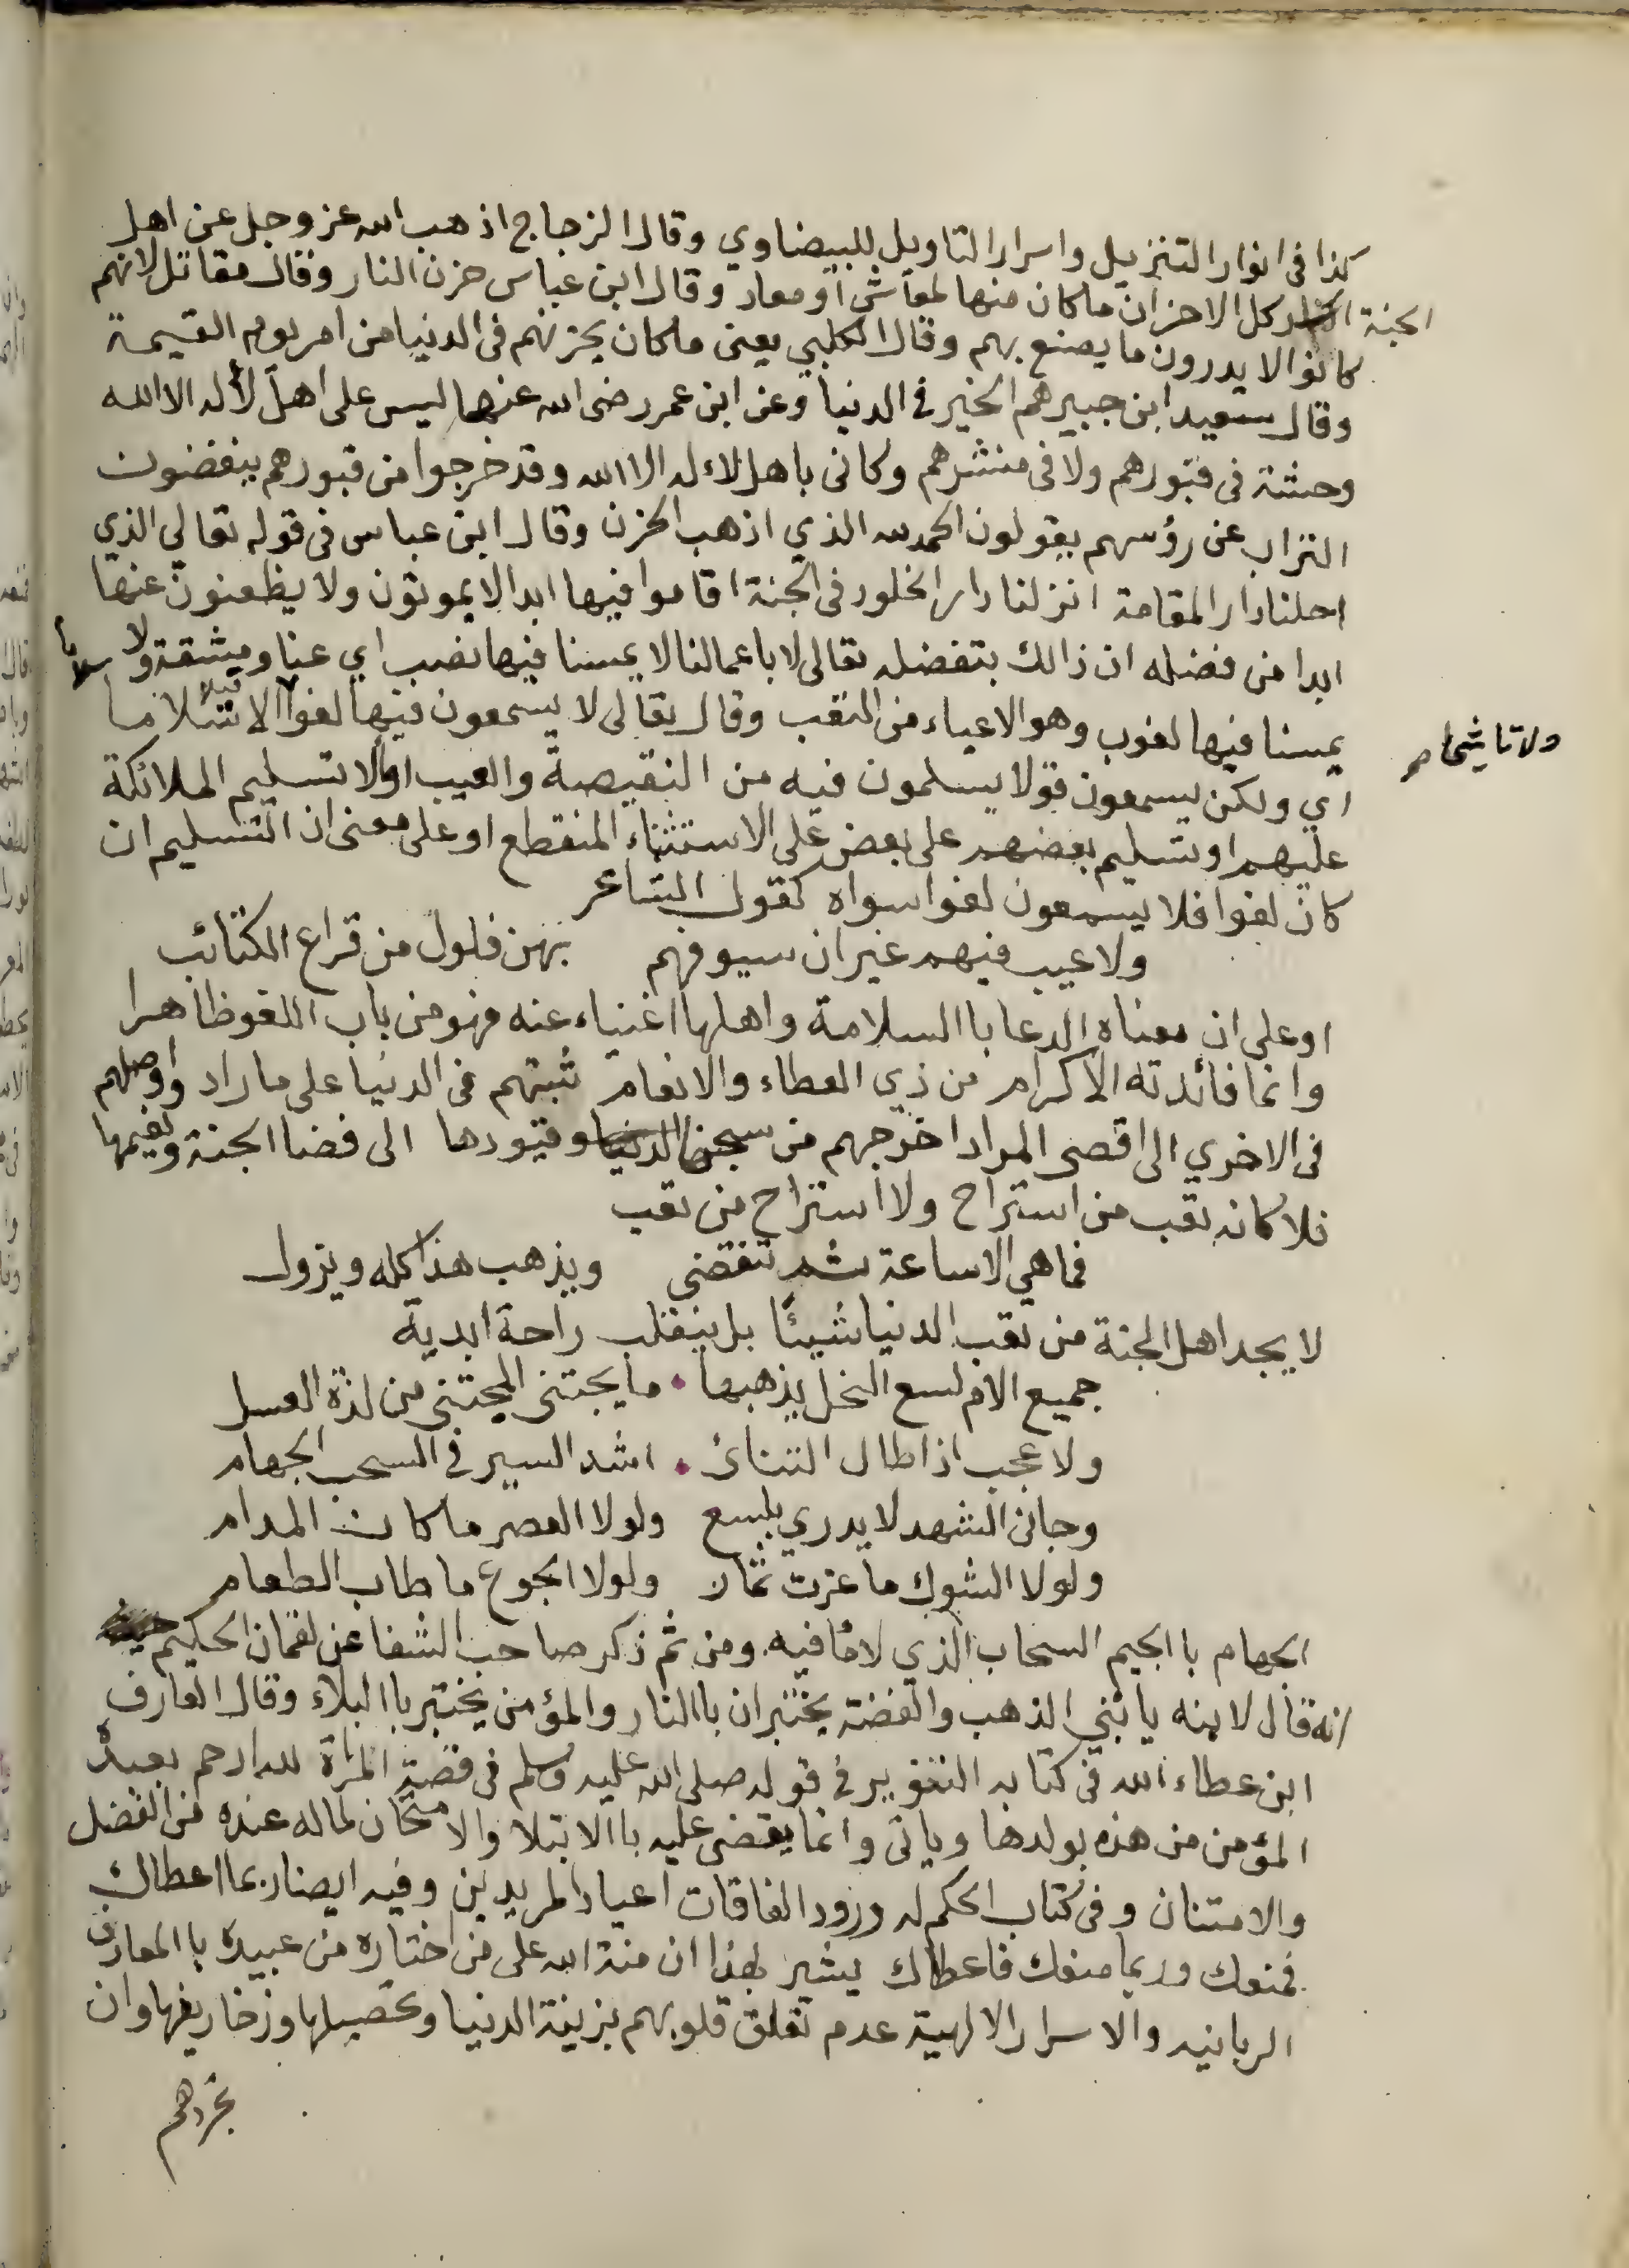 كذا فى انوار التنزيل واسرار التاويل للبيضاوي وقال الزجاج اذهب الله عز وجل عن اهل
الجنة كل الاحزان ماكان منها لمعاش او معاد وقال ابن عباس حزن النار وقال مقاتل لانهم
كانوا لا يدرون ما يصنع بهم وقال الكلبي يعنى ماكان يحزنهم فى الدنيا من امر يوم القيمة
وقال سعيد ابن جبير هم الخبز في الدنيا وعن ابن عمر رضى الله عنهما ليس على اهل لا اله الا الله
وحشة فى قبورهم ولا فى منشرهم وكانى باهل لا اله الا الله وقد خرجوا من قبورهم ينفضون
التراب عن رؤسهم يقولون الحمد لله الذي اذهب الحزن وقال ابن عباس فى قوله تعالى الذي
احلنا دار المقامة انزلنا دار الخلود فى الجنة اقاموا فيها ابدا لا يموتون ولا يظعنون عنها
ابدا من فضله ان ذالك بتفضله تعالى لا باعمالنا لا يمسنا فيها نصب اي عنا ومشقة ولا
يمسنا فيها لغوب وهو الاعياء من التعب وقال تعالى لا يسمعون فيها لغوا الا قيلا سلاما سلاما
ولا تاثيما صح
اي ولكن يسمعون قولا يسلمون فيه من النقيصة والعيب او الا تسليم الملائكة
عليهم او تسليم بعضهم على بعض على الاستثناء المنقطع او على معنى ان التسليم ان
كان لغوا فلا يسمعون لغوا سواه كقول الشاعر
ولا عيب فيهم غير ان سيوفهم بهن فلول من قراع الكتائب
او على ان معناه الدعا باالسلامة واهلها اغنياء عنه فهو من باب اللغو ظاهرا
وانما فائدته الاكرام من ذي العطاء والانعام ثبتهم فى الدنيا على ماراد واوصلهم
فى الاخري الى اقصى المراد اخرجهم من سجن الدنيا وقيودها الى فضا الجنة ونعيمها
فلا كانه تعب من استراح ولا استراح من تعب
فما هي الا ساعة ثم تنقضى ويذهب هذا كله ويزول
لا يجد اهل الجنة من تعب الدنيا شيئا بل ينقلب راحة ابدية
جميع الام لسع النحل يذهبها ما يجتنى المجتنى من لذة العسل
ولا عجب اذا طال التنائ اشد السير في السحب الجهام
وجانى الشهد لا يدري بلسع ولولا العصر ماكان المدام
ولولا الشوك ما عزت ثمار ولولا الجوع ما طاب الطعام
الجهام باالجيم السحاب الذي لا ما فيه ومن ثم ذكر صاحب الشفا عن لقمان الحكيم
انه قال لابنه يا بني الذهب والفضة يختبران باالنار والمؤمن يختبر باالبلاء وقال العارف
ابن عطاء الله فى كتابه التنوير في قوله صلى الله عليه وسلم فى قصة المراة لله ارحم بعبده
المؤمن من هذه بولدها وياتى وانما يقضى عليه باالابتلا والامتحان لماله عنده من الفضل
والامتنان وفى كتاب الحكم له ورود الفاقات اعياد المريدين وفيه ايضا ربما اعطاك
فمنعك وربما منعك فاعطاك يشير لهذا ان منة الله على من اختاره من عبيده باالمعارف
الربانيه والاسرار الالهية عدم تعلق قلوبهم بزينة الدنيا وتحصيلها وزخاريفها وان
تجردهم